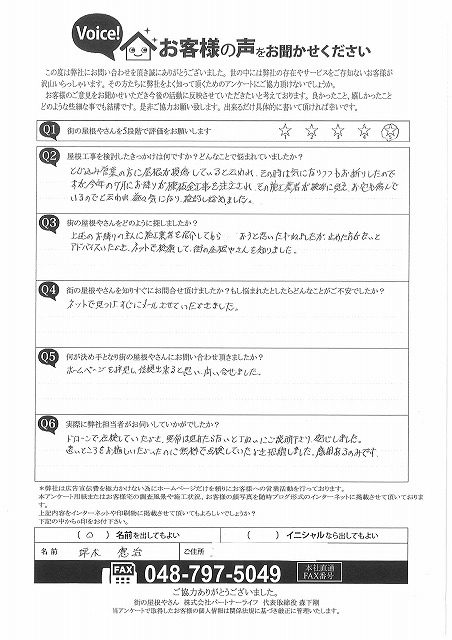 Voice!
お客様の声をお聞かせください
この度は弊社にお問い合わせを頂き誠にありがとうございました。世の中には弊社の存在やサービスをご存知ないお客様が
沢山いらっしゃいます。その方たちに弊社をよく知って頂くためのアンケートにご協力頂けないでしょうか。
お客様のご意見をお聞かせいただき今後の活動に反映させていただきたいと考えております。良かったこと、嬉しかったこと
どのような些細な事でも結構です。是非ご協力お願い致します。出来るだけ具体的に書いて頂ければ幸いです。
Q1 街の屋根やさんを5段階で評価をお願いします
1 2 3 4 5
Q2 屋根工事を検討したきっかけは何ですか？どんなことで悩まれていましたか？
とび込み営業の方に屋根が破損していると云われ、その時は気になりつつもお断りしたので
すが今年の7月にお隣りが屋根全工事を注文され、その施工業者が
いるのでと云われ
Q3 街の屋根やさんをどのように探しましたか？
上述のお隣りの主人に施工業者を紹介してもら おうと思い
アドバイスいただき、ネットで検索して、街の屋根やさんを知りました。
Q4 街の屋根やさんを知りすぐにお問合せ頂けましたか？もし悩まれたとしたらどんなことがご不安でしたか？
ネットで見つけ、すぐにメールさせていただきました。
Q5 何が決め手となり街の屋根やさんにお問い合わせ頂きましたか？
ホームページを拝見し、信頼出来ると思い、問い合せました。
Q6 実際に弊社担当者がお伺いしていかがでしたか？
ドローンで点検していただき、
遠いところをお越しいただいたのに無料で点検していただき恐縮しました。感謝あるのみです。
＊弊社は広告宣伝費を極力かけない為にホームページだけを頼りにお客様への営業活動を行っております。
本アンケート用紙またはお客様宅の調査風景や施工状況、お客様の顔写真を随時ブログ形式のインターネットに掲載させて頂いておりま
す。
上記内容をインターネットや印刷物に掲載させて頂いてもよろしいでしょうか？
下記の中から○印をお付下さい。
（ ○ ）名前を出してもよい （ ）イニシャルなら出してもよい
名前 ご住所
FAX 048-797-5049 本社直通 FAX番号
ご協力ありがとうございました。
街の屋根やさん 株式会社パートナーライフ 代表取締役 森下剛
当アンケートで取得したお客様の個人情報は関係法規に基づき厳正に管理いたします。